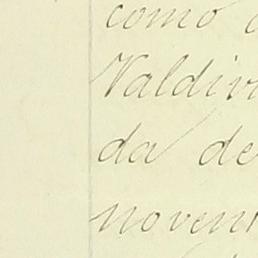 como
Valdivi
da de
novem